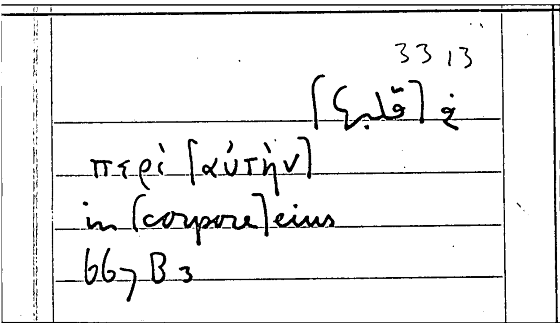 3313
περὶ [αὐτὴν]
in [corpore] eius
667 B 3